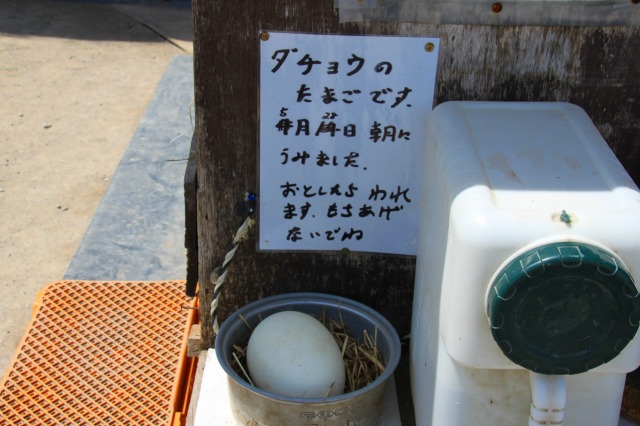 ダチョウの
たまごです。
5月22日 朝に
うみました。
おとしたら われ
ます。もちあげ
ないでね